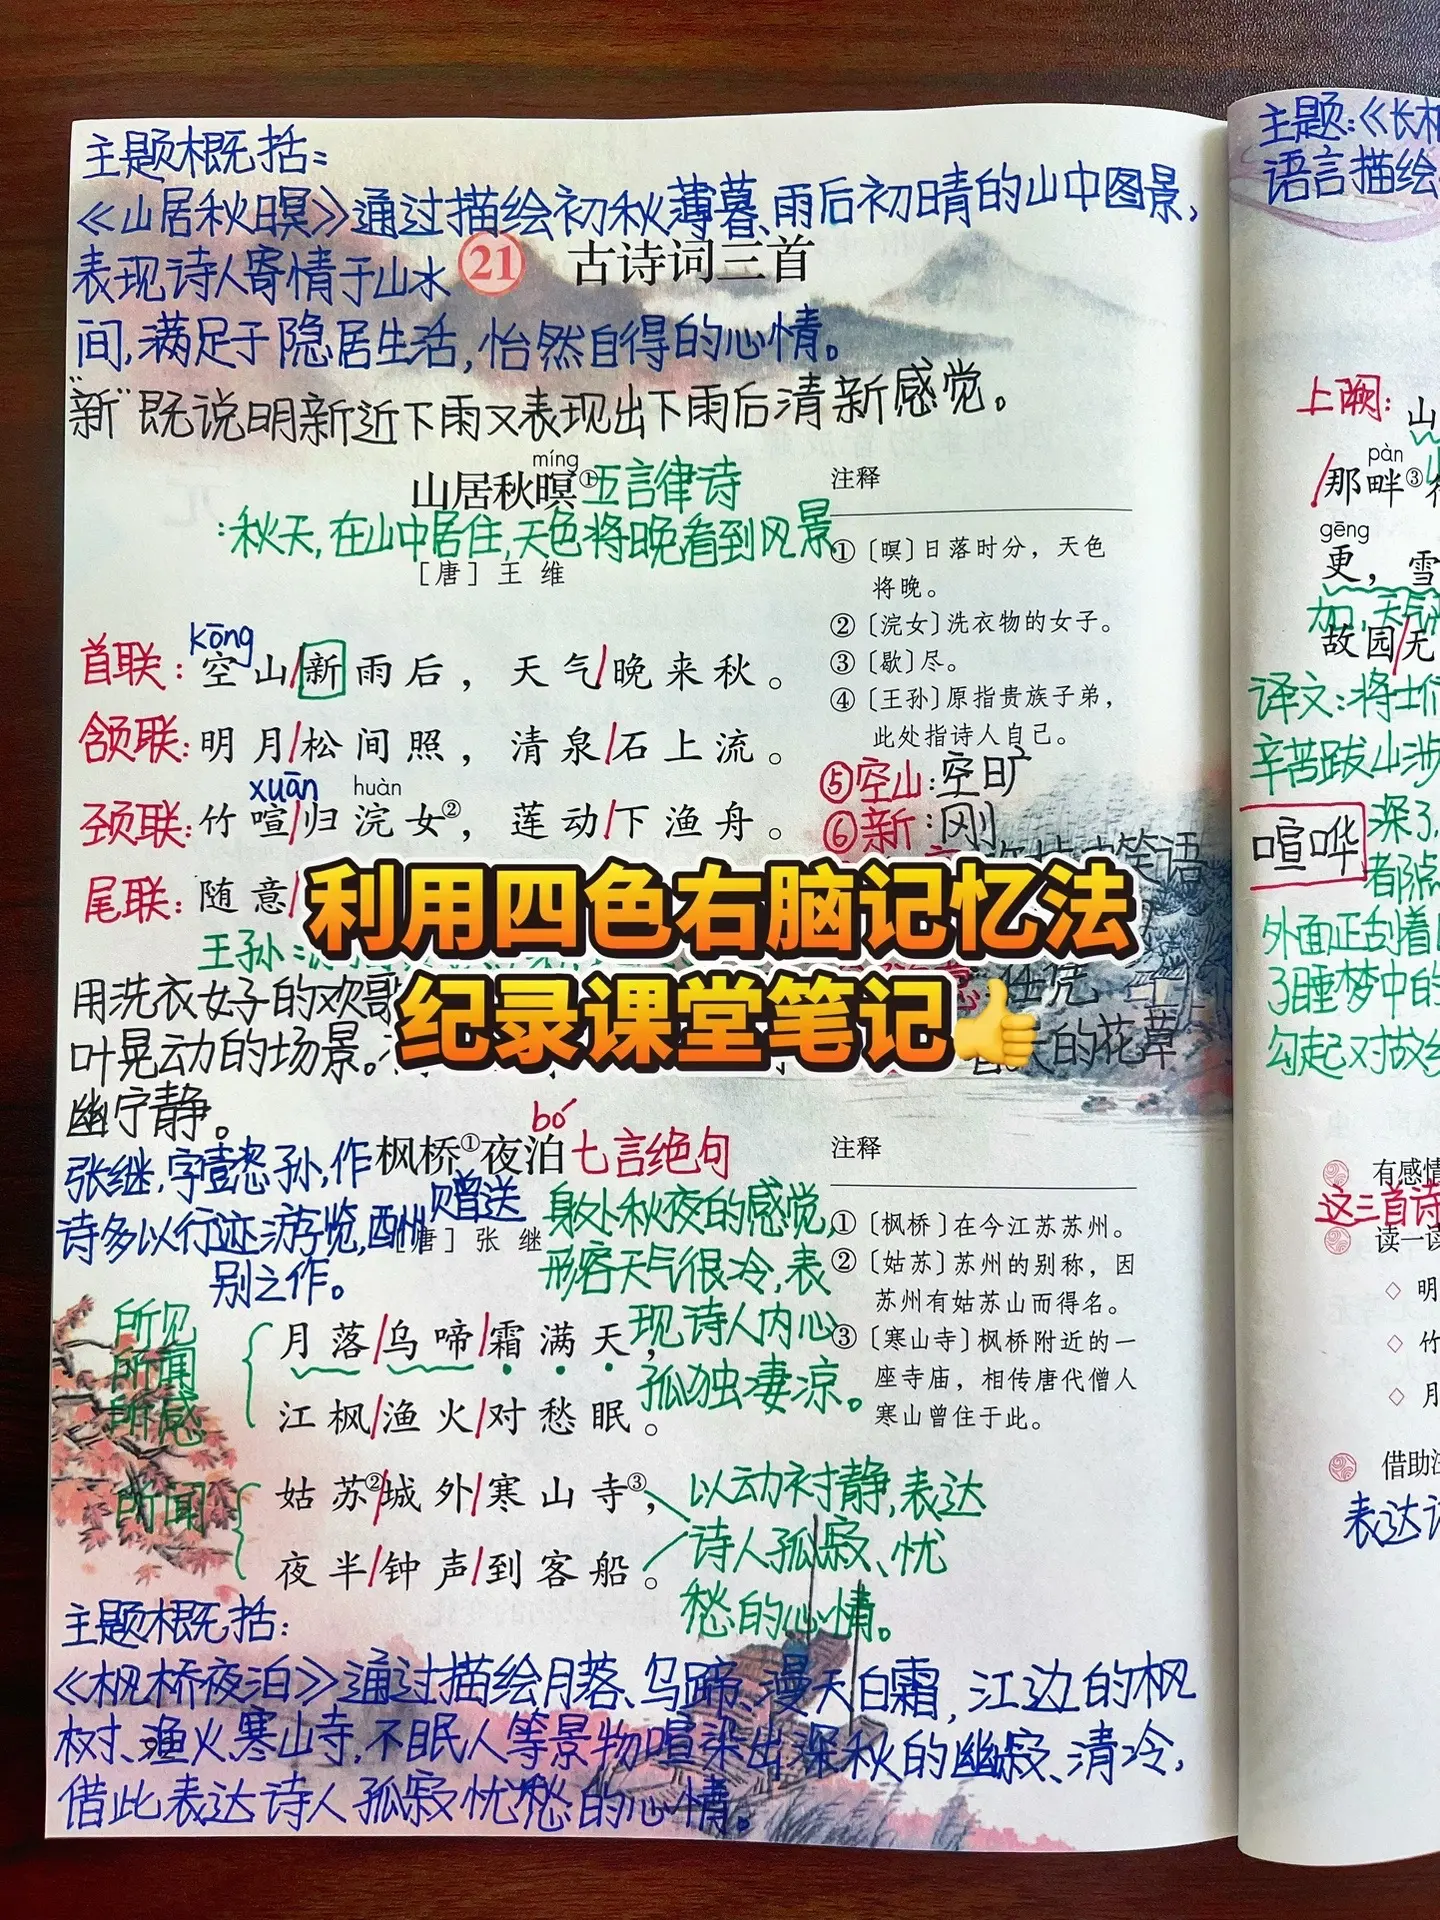 主题概括:
《山居秋暝》通过描绘初秋薄暮、雨后初晴的山中图景,
表现诗人寄情于山水
21 古诗词三首
间,满足于隐居生活,怡然自得的心情。
"新"既说明新近下雨又表现出下雨后清新感觉。
míng
山居秋暝①
五言律诗
:秋天,在山中居住,天色将晚看到风景
[唐] 王 维
kōng
首联:空山/新雨后，天气/晚来秋。
颔联:明月/松间照，清泉/石上流。
xuān huàn
颈联:竹喧/归浣女②，莲动/下渔舟。
尾联:随意/
王孙:
用洗衣女子的欢歌
叶晃动的场景。
幽宁静。
注释
①〔暝〕日落时分，天色
将晚。
②〔浣女〕洗衣物的女子。
③〔歇〕尽。
④〔王孙〕原指贵族子弟，
此处指诗人自己。
⑤空山:空旷
⑥新:刚
笑语
任凭
天的花草
利用四色右脑记忆法
纪录课堂笔记👍
bó
枫桥①夜泊
七言绝句
[唐] 张 继
张继,字懿孙,作
诗多以行迹游览,酬 赠送
别之作。
身处秋夜的感觉,
形容天气很冷,表
现诗人内心
孤独凄凉。
所见
所闻
所感
月落/乌啼/霜满天，
江枫/渔火/对愁眠。
所闻
姑苏②/城外/寒山寺③，
夜半/钟声/到客船。
以动衬静,表达
诗人孤寂、忧
愁的心情。
注释
①〔枫桥〕在今江苏苏州。
②〔姑苏〕苏州的别称，因
苏州有姑苏山而得名。
③〔寒山寺〕枫桥附近的一
座寺庙，相传唐代僧人
寒山曾住于此。
主题概括:
《枫桥夜泊》通过描绘月落、乌蹄、漫天白霜,江边的枫
树、渔火、寒山寺,不眠人等景物喧染出深秋的幽寂、清冷,
借此表达诗人孤寂忧愁的心情。
主题:《长相
语言描绘
上阕:山
pàn
/那畔③
gēng
更，雪
加,天气
故园/无
译文:将士们
辛苦跋山涉
喧哗
深了,
外面正刮着
了睡梦中的
勾起对故乡
有感情
这三首诗
读一读
明
竹
月
借助注
表达